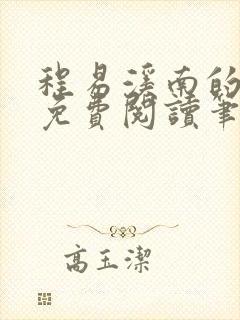 程易溪南的
免費閱讀筆
高玉潔